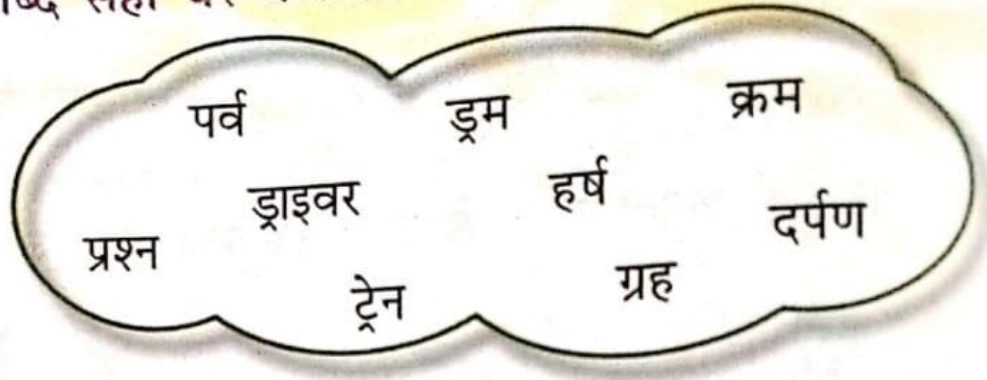 पर्व ड्रम क्रम
ड्राइवर हर्ष दर्पण
प्रश्न ट्रेन ग्रह